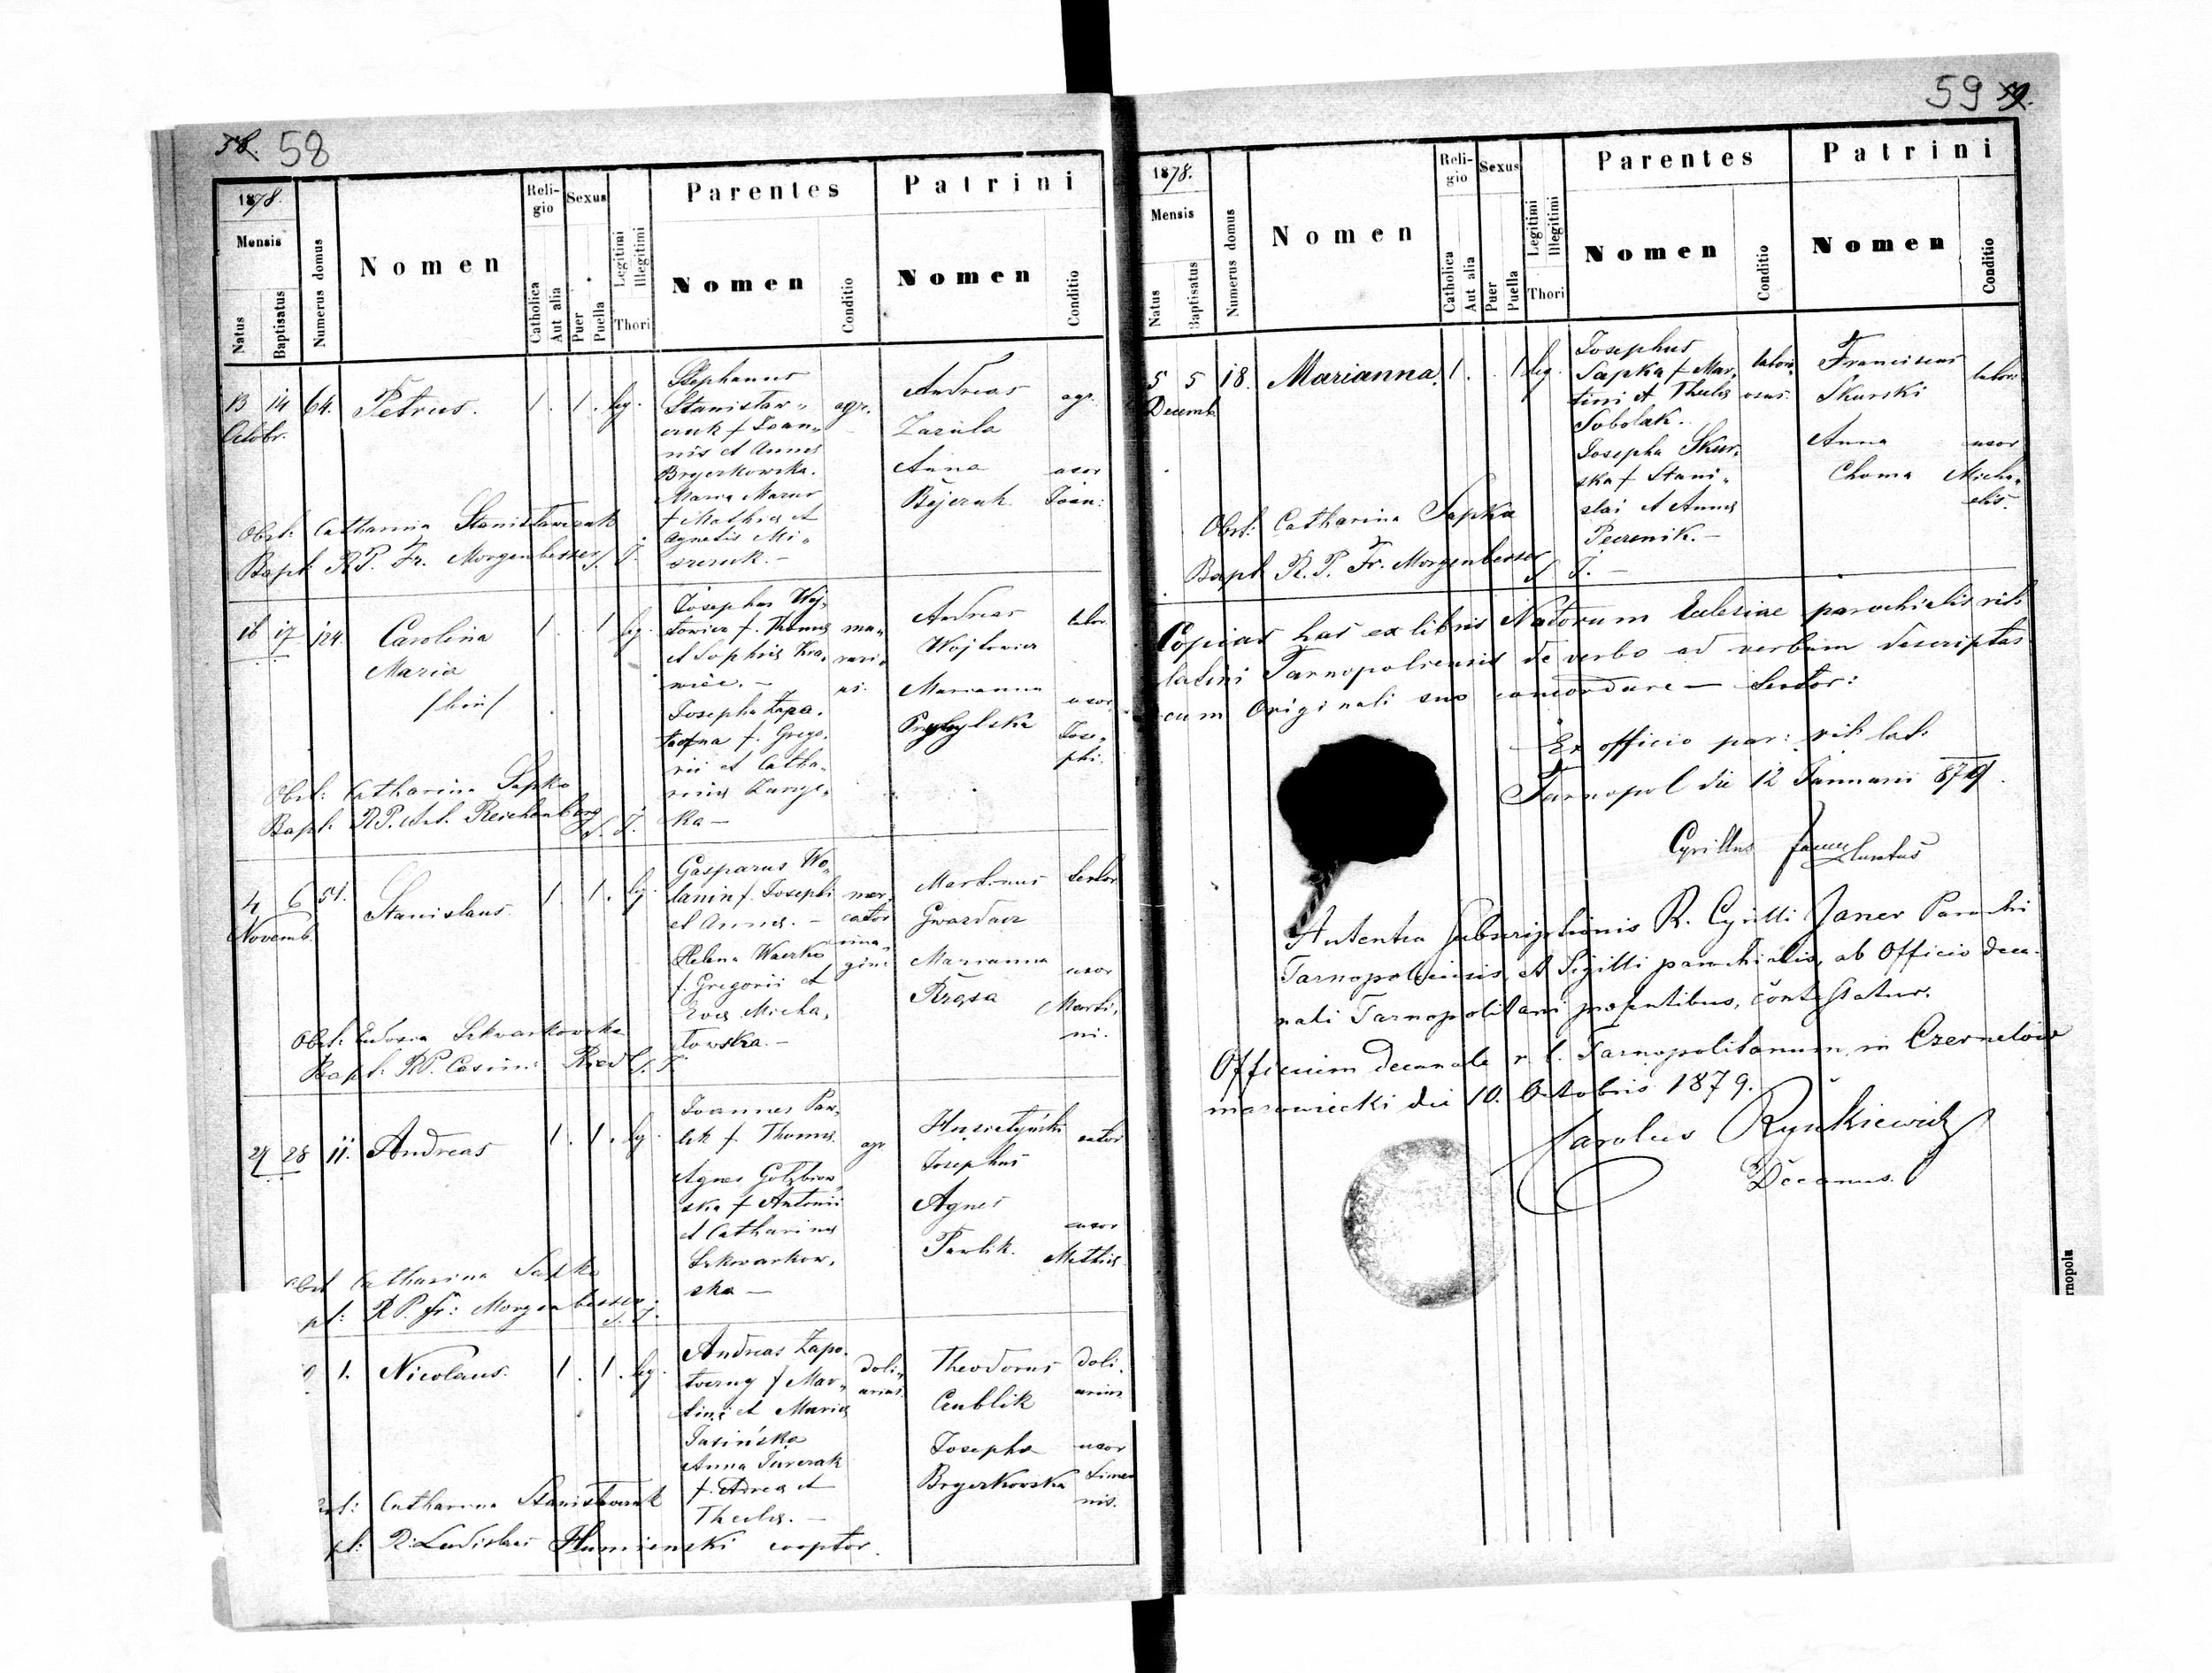 58. 58
1878.
Mensis
Natus
Baptisatus
Numerus domus
Nomen
Religio
Catholica
Aut alia
Sexus
Puer
Puella
Legitimi
Illegitimi
Thori
Parentes
Nomen
Conditio
Patrini
Nomen
Conditio
13 14 64. Petrus. 1. 1. leg.
Octobr.
Stephanus
Stanisław„
czuk f Joan„
nis et Annæ
Bryczkowska.
Maria Mazur
f Mathiæ et
Agnetis Mi„
agr.
Andreas
Zazula
Anna
agr.
uxor
Joan:
Obst: Catharina Stanisławczuk
Bapt: R.P. Fr. Morgenbesser S. J.
16 17 124. Carolina 1. 1 leg.
Maria
/bin/
Josephus Woj„
towicz f. Thomæ
et Sophiæ Kra„
wiec. —
Josepha Łapo„
f. Grego„
rii et Catha„
rinæ
ka —
Andreas
Wojtowicz
Marianna
Przybylska
labor.
uxor
Jose„
phi.
Obst: Catharina Sapka
Bapt: R.P. Art. Reichenberg S. J.
4 6 51. Stanislaus. 1. 1. leg.
Novemb.
Gasparus Wo„
lanin f. Josephi
et Annæ. —
Helena
f. Gregorii et
Evæ Micha„
łowska. —
mer„
cator
Martinus
Gwazdacz
Marianna
uxor
Marti„
ni.
Obst: Szkwarkowska
Bapt: R.P. Casim: Riedl S. J.
27 28 11. Andreas 1. 1. leg.
Joannes Paw„
lik f. Thomæ
Agnes Gołębiow„
ska f Antonii
et Catharinæ
Szkwarkow„
ska —
agr.
Josephus
Agnes
Pawlik.
uxor
Mathiæ
Obst Catharina Sapka
pt: R.P. Fr: Morgenbesser S. J.
1. Nicolaus. 1. 1. leg.
Andreas Zapo„
toczny f Mar„
tini et Mariæ
Jasińska
Anna Turczak
f. Andreæ et
Theclæ. —
doli„
arius.
Theodorus
Czublik
Josepha
Bryczkowska
doli„
arius
uxor
Simeo
nis.
Catharina Stanisławczuk
pt: R. Ladislaus Humieński cooptor.
59 59.
1878.
Mensis
Natus
Baptisatus
Numerus domus
Nomen
Religio
Catholica
Aut alia
Sexus
Puer
Puella
Legitimi
Illegitimi
Thori
Parentes
Nomen
Conditio
Patrini
Nomen
Conditio
5 5 18. Marianna. 1. 1 leg.
Decemb.
Josephus
Sapka f Mar„
tini et Theclæ
Sobolak.
Josepha Skur„
ska f Stani„
slai et Annæ
Peczenik. —
labori„
osus.
Franciscus
Skurski
Anna
Choma
labor:
uxor
Micha„
elis.
Obst: Catharina Sapka
Bapt R. P. Fr. Morgenbesser S J. —
Copias has ex libris Natorum Ecclesiae parochialis rit:
latini Tarnopoliensis de verbo ad verbum descriptas
cum Originali suo concordare — testor:
Ex officio par: rit: lat.
Tarnopol die 12 Januarii 879.
Cyrillus
Autentia Subscriptionis R. Cyrilli Janer Parochi
Tarnopoliensis, et Sigilli parochialis, ab Officio deca-
nali Tarnopolitani praesentibus, contestatur.
Officium decanale r. l. Tarnopolitanum, in Czernelów
mazowiecki die 10. Octobris 1879.
Carolus Rynkiewicz
Decanus.
rnopola